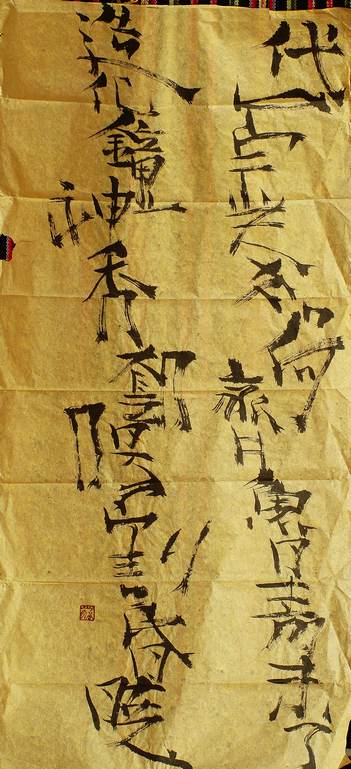 岱宗夫如何齊魯青未了
造化鐘神秀陰陽割昏曉